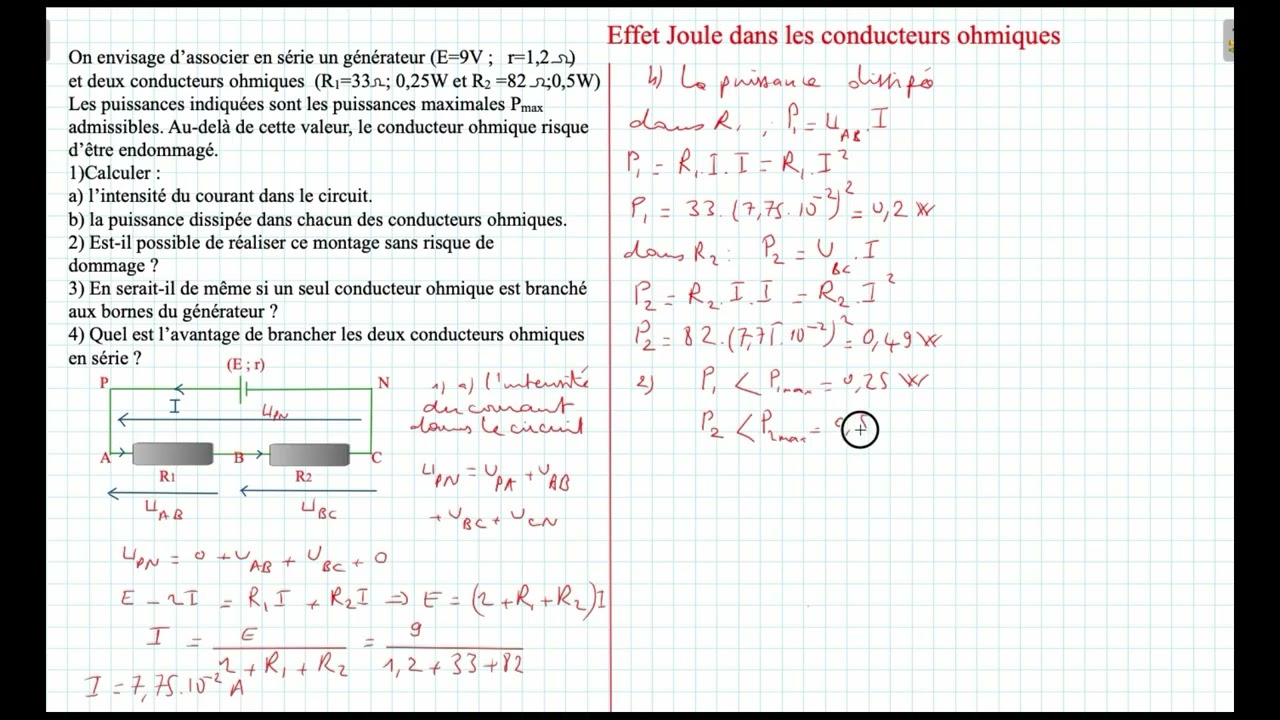 Effet Joule dans les conducteurs ohmiques
On envisage d'associer en série un générateur (E=9V ; r=1,2Ω)
et deux conducteurs ohmiques (R₁=33Ω; 0,25W et R₂ =82 Ω;0,5W)
Les puissances indiquées sont les puissances maximales Pmax
admissibles. Au-delà de cette valeur, le conducteur ohmique risque
d'être endommagé.
1)Calculer :
a) l'intensité du courant dans le circuit.
b) la puissance dissipée dans chacun des conducteurs ohmiques.
2) Est-il possible de réaliser ce montage sans risque de
dommage ?
3) En serait-il de même si un seul conducteur ohmique est branché
aux bornes du générateur ?
4) Quel est l'avantage de brancher les deux conducteurs ohmiques
en série ?
(E ; r)
P
N
I
U_PN
A
B
C
R1
R2
U_AB
U_BC
1) a) l'intensité
du courant
dans le circuit
U_PN = U_PA + U_AB
+ U_BC + U_CN
U_PN = 0 + U_AB + U_BC + 0
E - rI = R₁I + R₂I => E = (r + R₁ + R₂)I
I = E / (r + R₁ + R₂) = 9 / (1,2 + 33 + 82)
I = 7,75.10⁻² A
b) La puissance dissipé
dans R₁ : P₁ = U_AB . I
P₁ = R₁.I.I = R₁.I²
P₁ = 33.(7,75.10⁻²)² = 0,2 W
dans R₂ : P₂ = U_BC . I
P₂ = R₂.I.I = R₂.I²
P₂ = 82.(7,75.10⁻²)² = 0,49 W
2) P₁ < P₁max = 0,25 W
P₂ < P₂max =